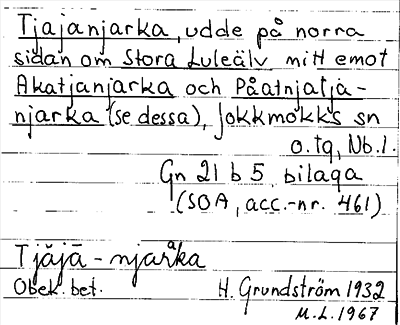 Tjajanjarka, udde på norra
sidan om Stora Luleälv mitt emot
Akatjanjarka och Påatnjatja-
njarka (se dessa), Jokkmokks sn
o. tg, Nb. l.
Gn 21 b 5, bilaga
(SOA, acc.-nr. 461)
Tjăjā-njarᵃka
Obek. bet. H. Grundström 1932
M.L. 1967